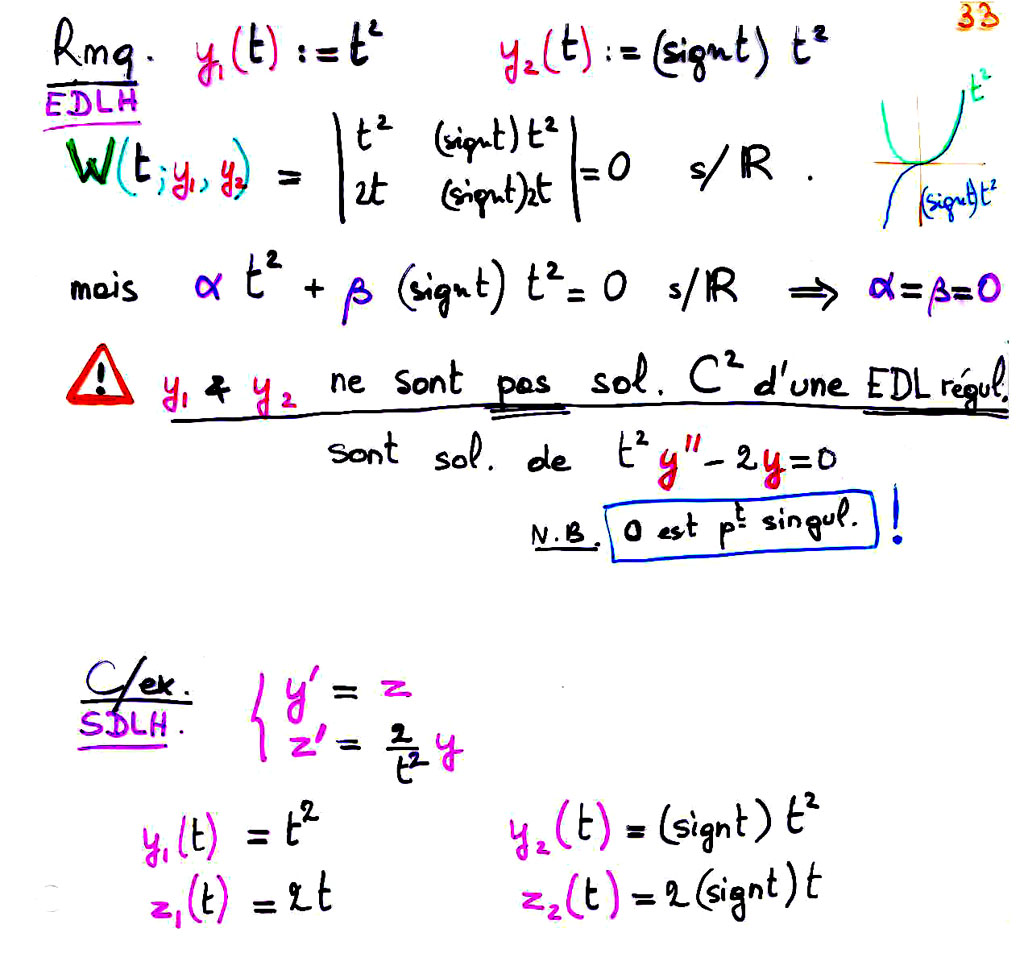 33
Rmq. y₁(t) := t² y₂(t) := (sign t) t²
EDLH
t²
W(t; y₁, y₂) = | t² (sign t) t² | = 0 s/ℝ.
| 2t (sign t) 2t |
(sign t) t²
mais α t² + β (sign t) t² = 0 s/ℝ ⟹ α = β = 0
⚠ y₁ & y₂ ne sont pas sol. C² d'une EDL régul.
sont sol. de t² y'' - 2y = 0
N.B. 0 est pᵗ singul. !
C/ex. { y' = z
SDLH. z' = 2/t² y
y₁(t) = t² y₂(t) = (sign t) t²
z₁(t) = 2t z₂(t) = 2 (sign t) t